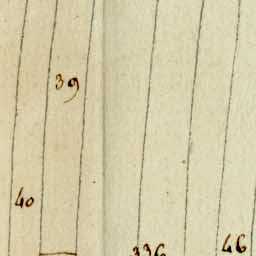 39
40
46
336